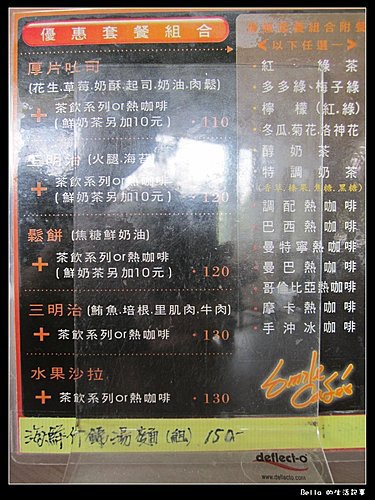 優惠套餐組合
厚片吐司
(花生.草莓.奶酥.起司.奶油.肉鬆)
+ 茶飲系列or熱咖啡
(鮮奶茶另加10元) · 110
三明治 (火腿.海苔
+ 茶飲系列or熱咖啡
(鮮奶茶另加10元) · 120
鬆餅 (焦糖鮮奶油)
+ 茶飲系列or熱咖啡
(鮮奶茶另加10元) · 120
三明治 (鮪魚.培根.里肌肉.牛肉)
+ 茶飲系列or熱咖啡 · 130
水果沙拉
+ 茶飲系列or熱咖啡 · 130
優惠套餐組合附餐
<以下任選一>
· 紅 綠 茶
· 多多綠.梅子綠
· 檸檬(紅.綠)
· 冬瓜菊花.洛神花
· 醇奶茶
· 特調奶茶
(香草.榛果.焦糖.黑糖)
· 調配熱咖啡
· 巴西熱咖啡
· 曼特寧熱咖啡
· 曼巴熱咖啡
· 哥倫比亞熱咖啡
· 摩卡熱咖啡
· 手沖冰咖啡
Smile
海鮮什錦湯麵(組) 150-
deflect-o
www.deflecto.com
Bella 的生活記事